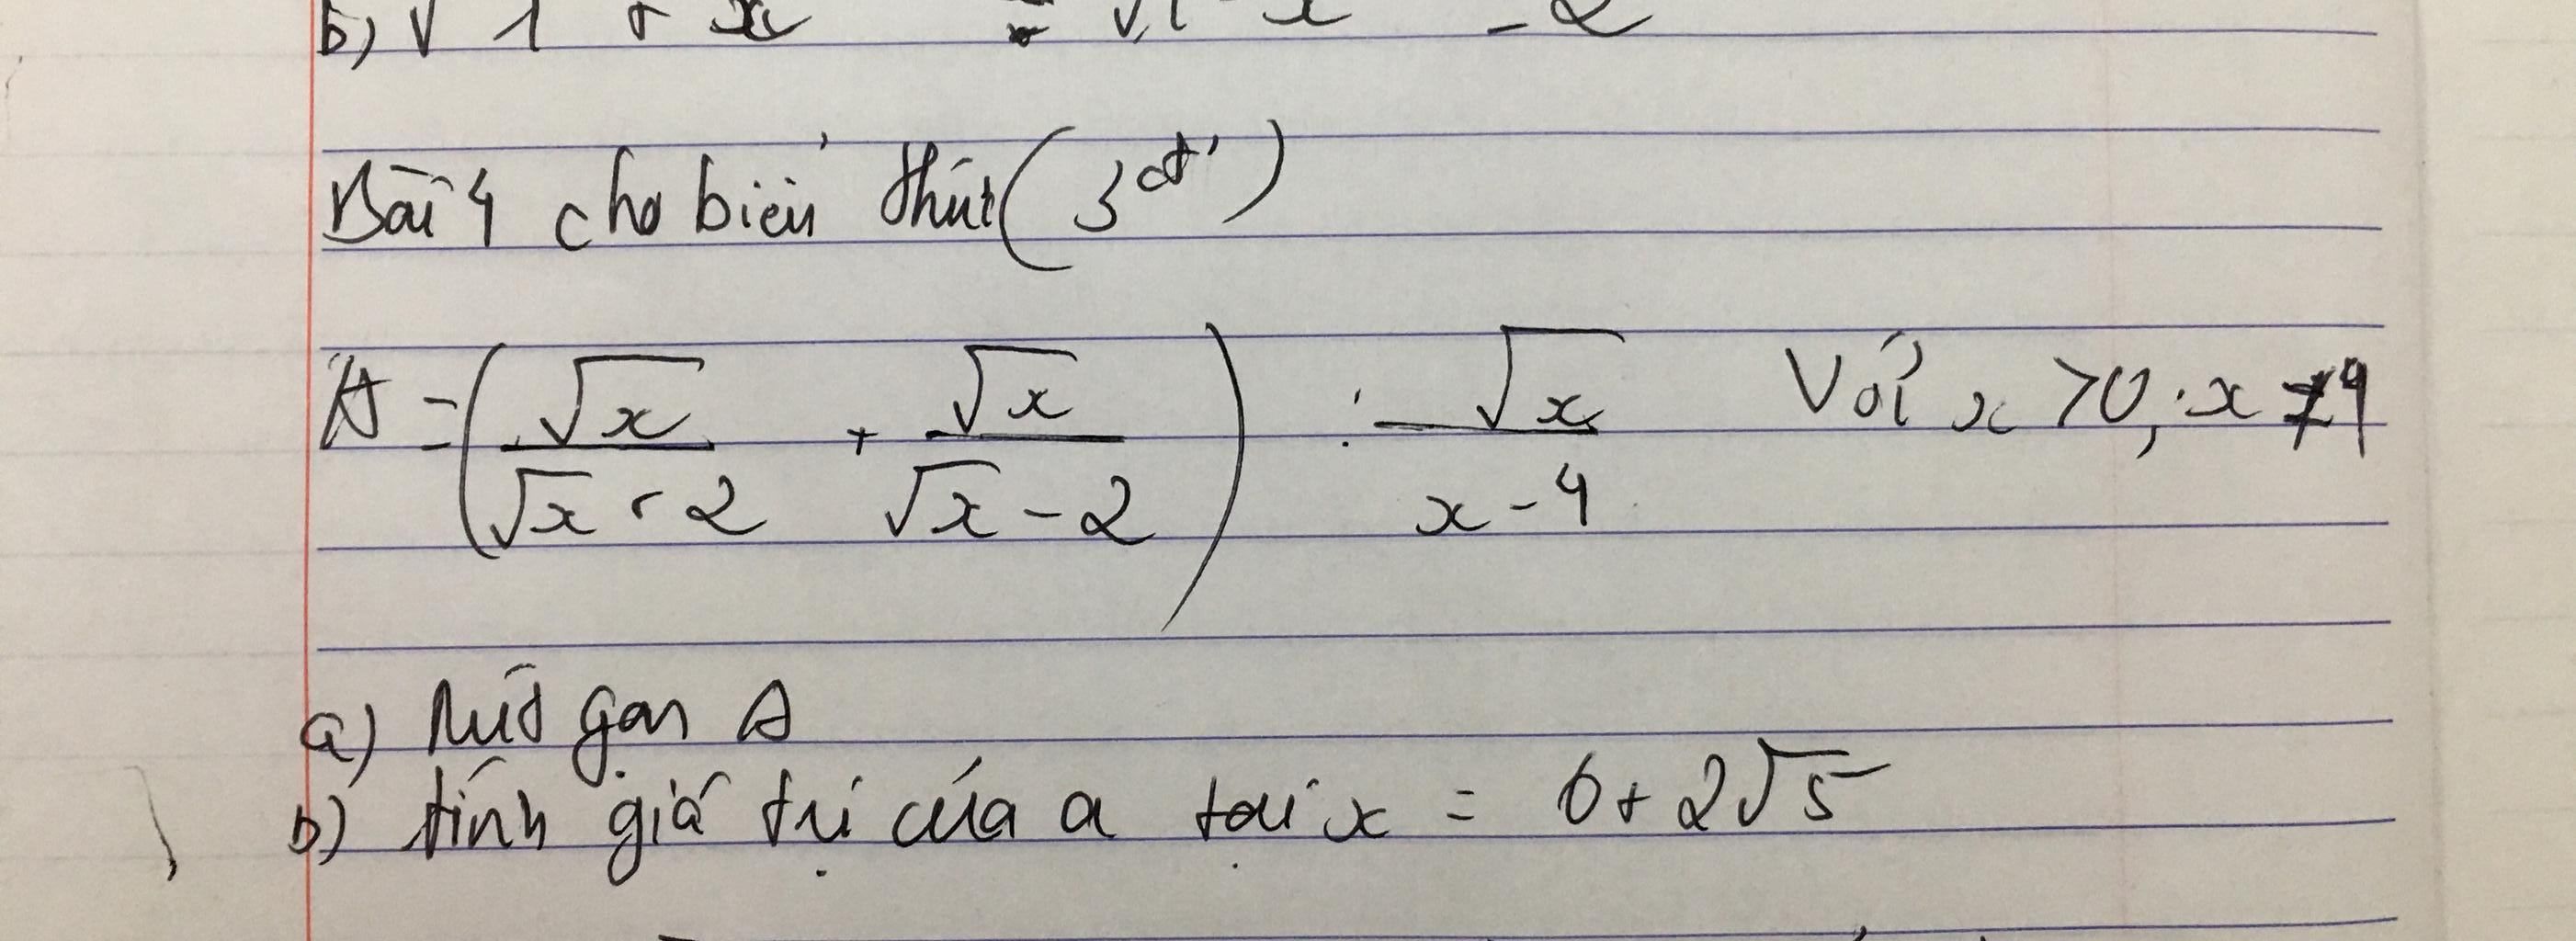 b) √1 + x = √1 - x - 2
Bài 4 cho biểu thức (3đ)
A = (√x/(√x + 2) + √x/(√x - 2)) : √x/(x - 4) Với x > 0, x ≠ 4
a) Rút gọn A
b) tính giá trị của a tại x = 6 + 2√5